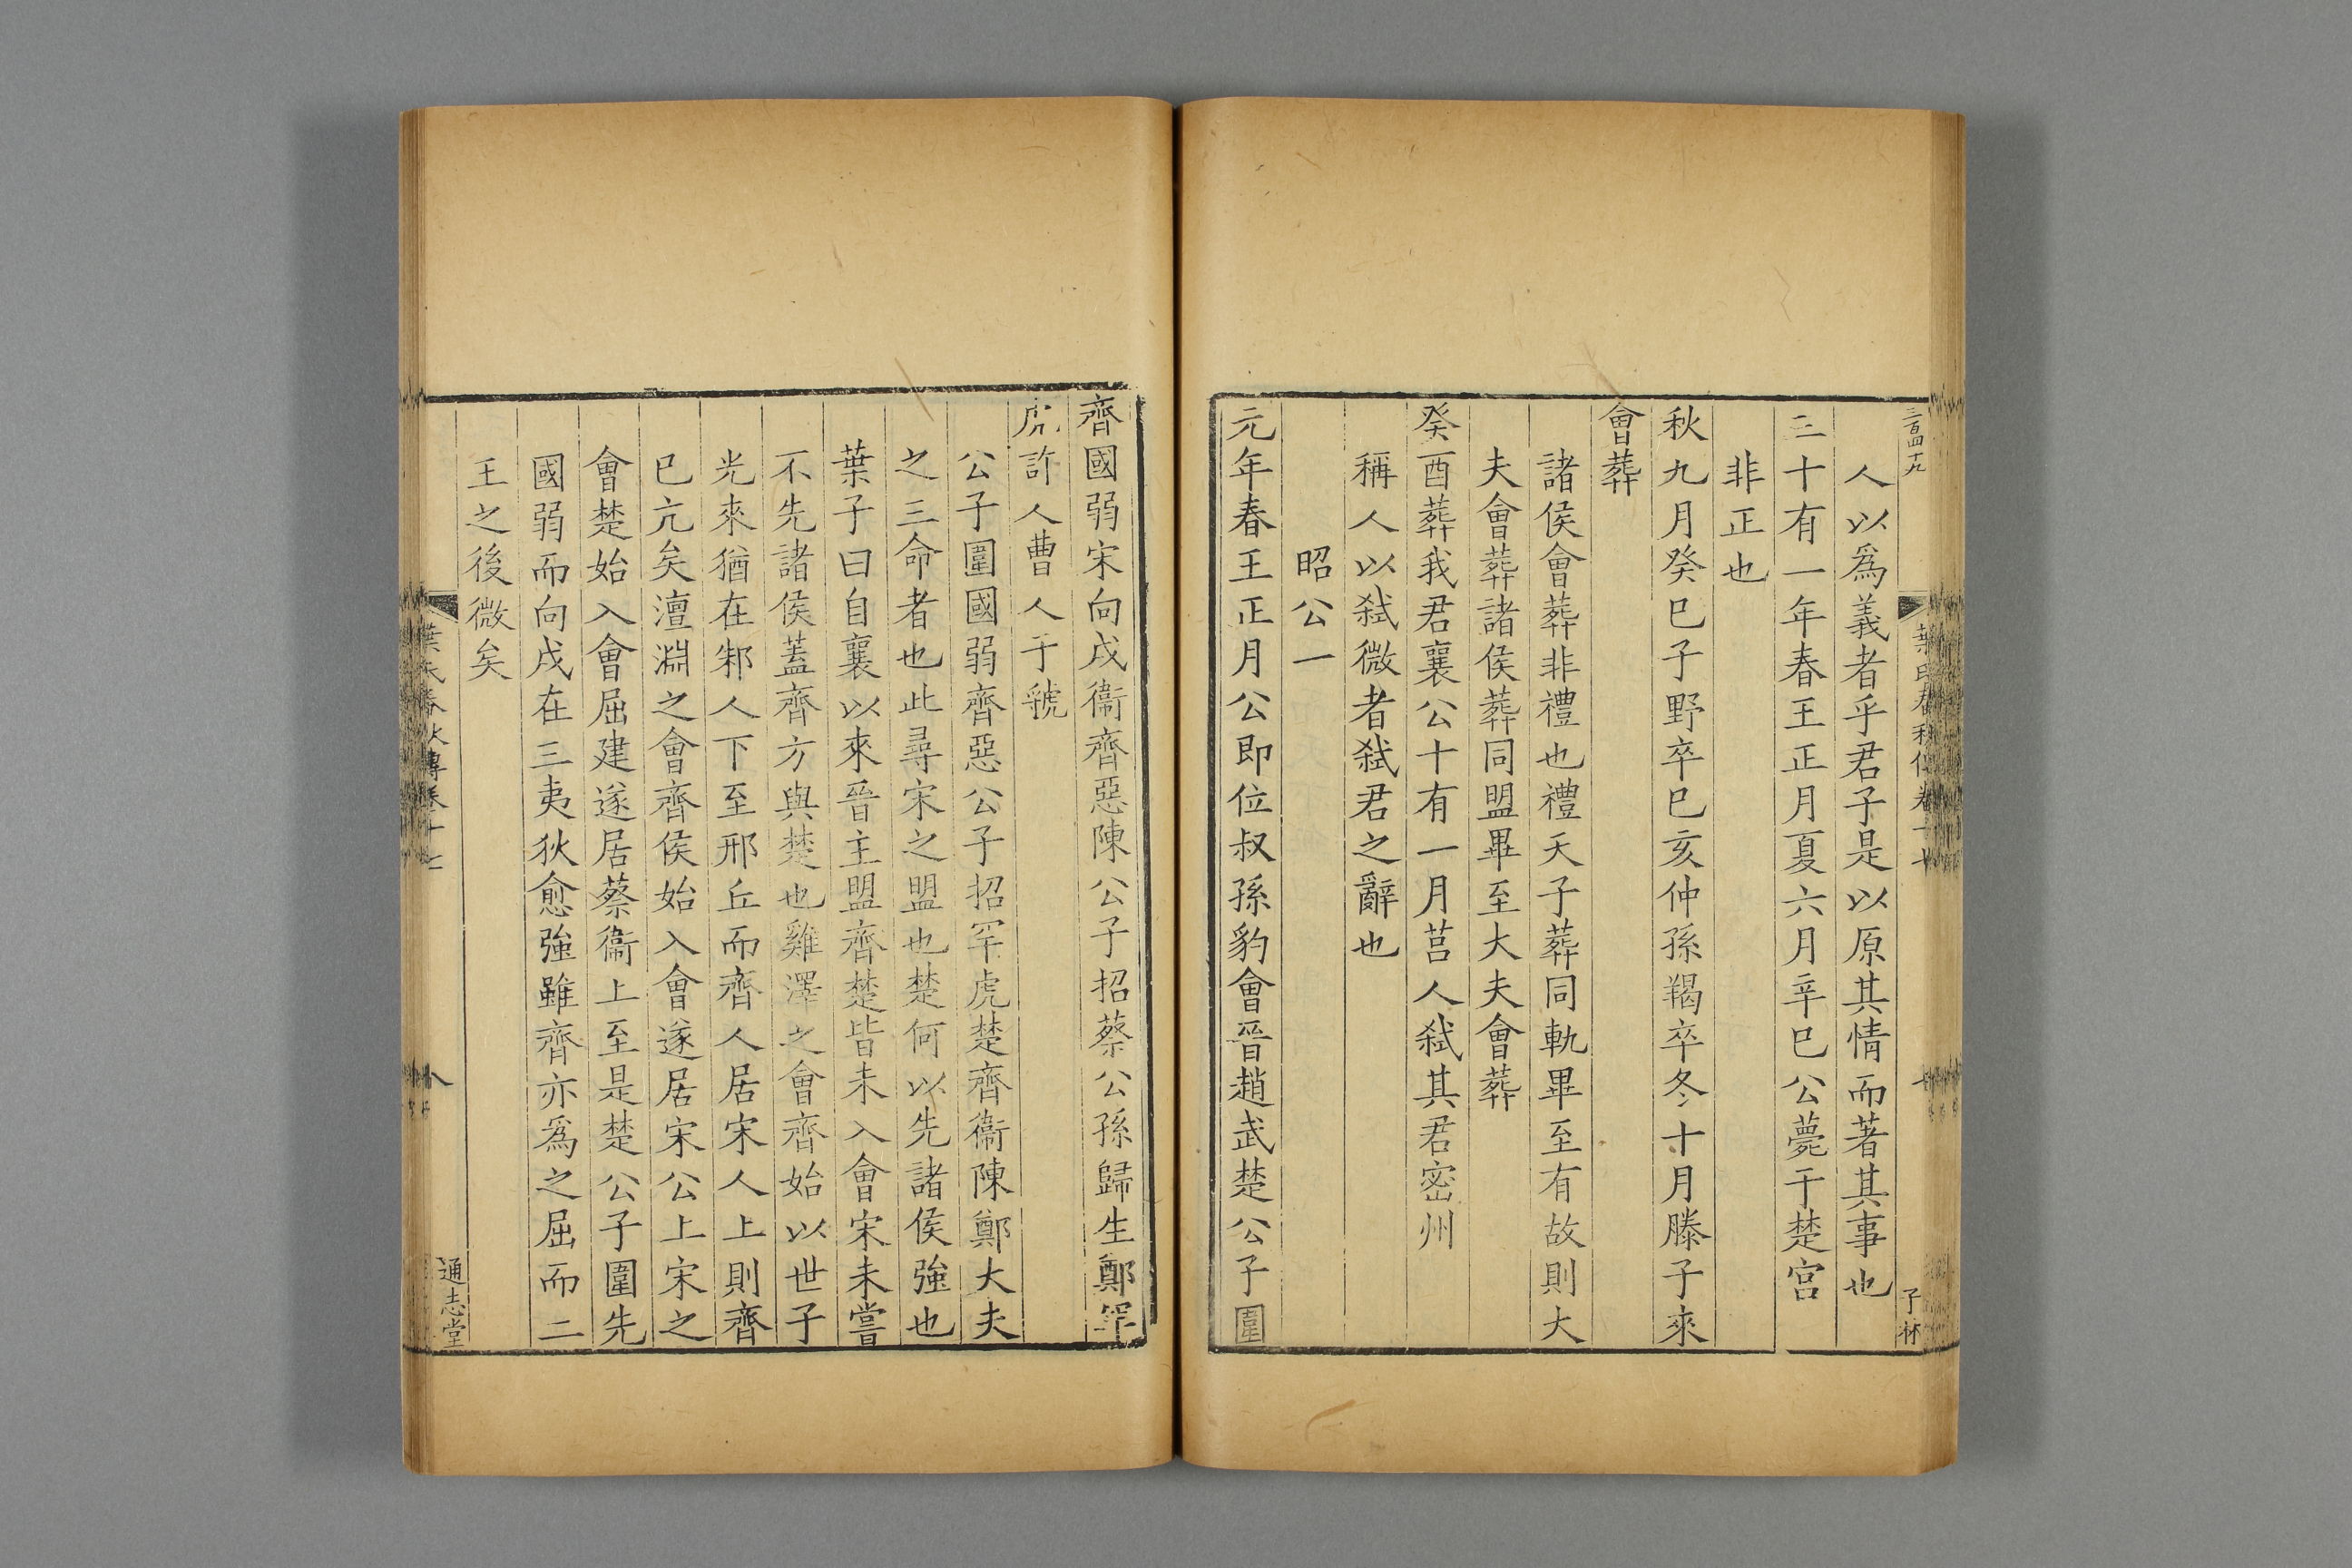 三百四十九
人以爲義者乎君子是以原其情而著其事也
三十有一年春王正月夏六月辛巳公薨于楚宮
非正也
秋九月癸巳子野卒己亥仲孫羯卒冬十月滕子來
會葬
諸侯會葬非禮也禮天子葬同軌畢至有故則大
夫會葬諸侯葬同盟畢至大夫會葬
癸酉葬我君襄公十有一月莒人弒其君密州
稱人以弒微者弒君之辭也
昭公一
元年春王正月公即位叔孫豹會晉趙武楚公子圍
齊國弱宋向戌衞齊惡陳公子招蔡公孫歸生鄭罕
虎許人曹人于虢
公子圍國弱齊惡公子招罕虎楚齊衞陳鄭大夫
之三命者也此尋宋之盟也楚何以先諸侯強也
葉子曰自襄以來晉主盟齊楚皆未入會宋未嘗
不先諸侯蓋齊方與楚也雞澤之會齊始以世子
光來猶在邾人下至邢丘而齊人居宋人上則齊
已亢矣澶淵之會齊侯始入會遂居宋公上宋之
會楚始入會屈建遂居蔡衞上至是楚公子圍先
國弱而向戌在三夷狄愈強雖齊亦爲之屈而二
王之後微矣
葉氏春秋傳卷十七
八
通志堂